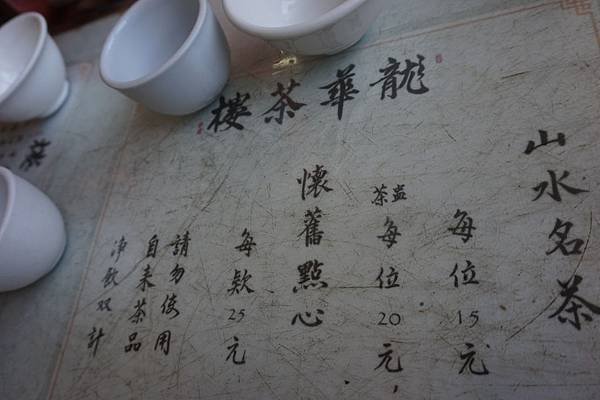 龍華茶樓
山水名茶
每位15元
茶盅每位20元
懷舊點心
每款25元
請勿使用
自来茶品
净飲双計